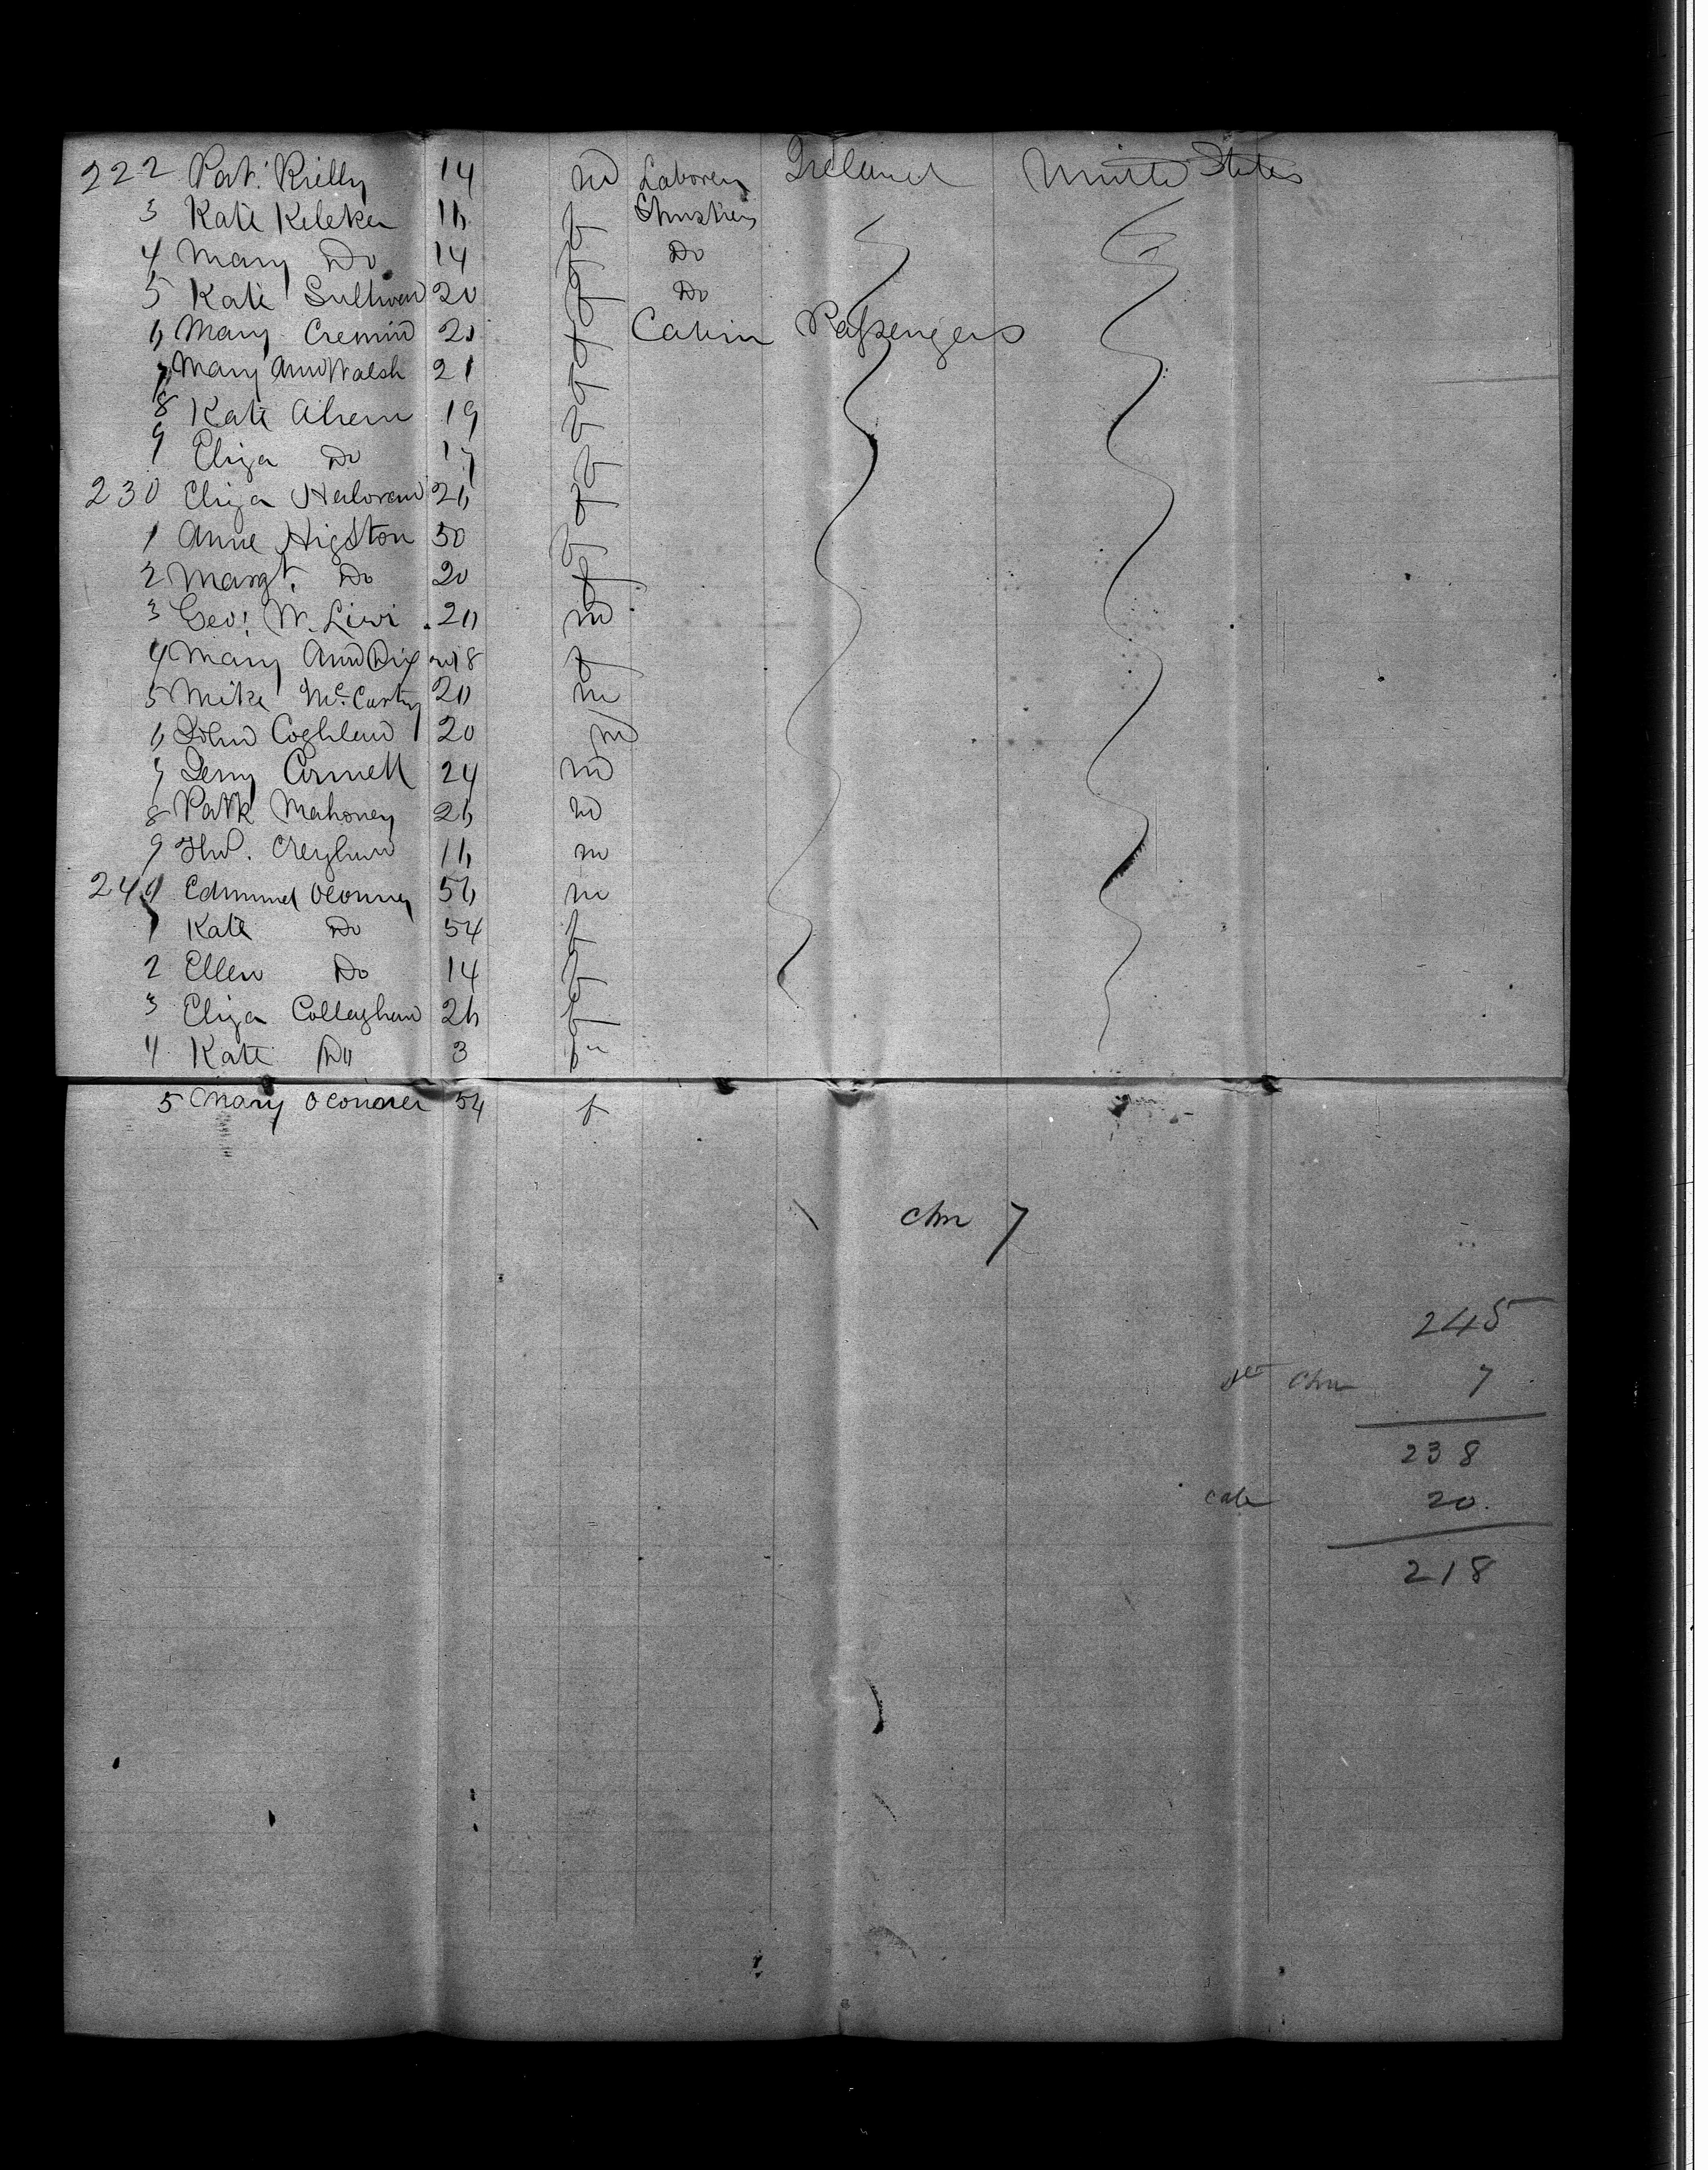 222 Pat. Rielly 14 m Laborer Ireland United States
3 Kate Keleker 16 f
4 Mary Do 14 f Do
5 Kate Sullivan 20 f Do
6 Mary Cremin 20 f Cabin Passengers
7 Mary Ann Walsh 21 f
8 Kate Ahern 19 f
9 Eliza Do 17 f
230 Eliza Haloran 26 f
1 Anne Higston 50 f
2 Margt. Do 20 f
3 Geo. W. Livi 20 m
4 Mary Ann Dix 18 f
5 Mike McCarty 20 m
6 John Coghlan 20 m
7 Jerry Connell 24 m
8 Patk Mahoney 26 m
9 16 m
240 Edmund OConner 56 m
1 Kate Do 54 f
2 Ellen Do 14 f
3 Eliza Collaghan 26 f
4 Kate Do 3 f
5 Mary OConner 54 f
Chn 7
245
Chn 7
238
Cab 20
218